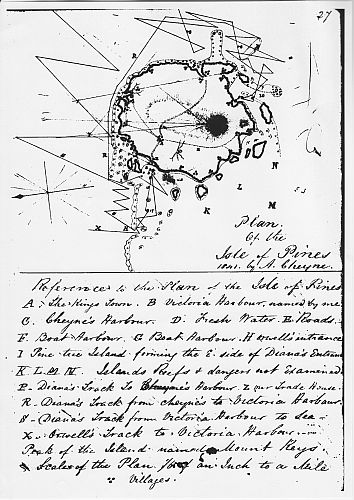 27
Plan
Of the
Isle of Pines
1841. by A. Cheyne.
N
L M
K
R
X
References to the Plan of the Isle of Pines
A. The Kings Town. B Victoria Harbour, named by me
C. Cheyne's Harbour. D. Fresh Water. E Roads.
F. Boat Harbour. G Boat Harbour. H entrance
I Pine tree Island forming the E. side of Diana's Entrance
K L M N Islands Reefs & dangers not Examined
P. Diana's Track To Cheyne's Harbour. Z our Trade House.
R. Diana's Track from cheyne's to Victoria Harbour.
S. Diana's Track from Victoria Harbour to Sea.
X. Track to Victoria Harbour.
Peak of the Island named Mount Keys.
Scale of the Plan an Inch to a Mile
Villages.